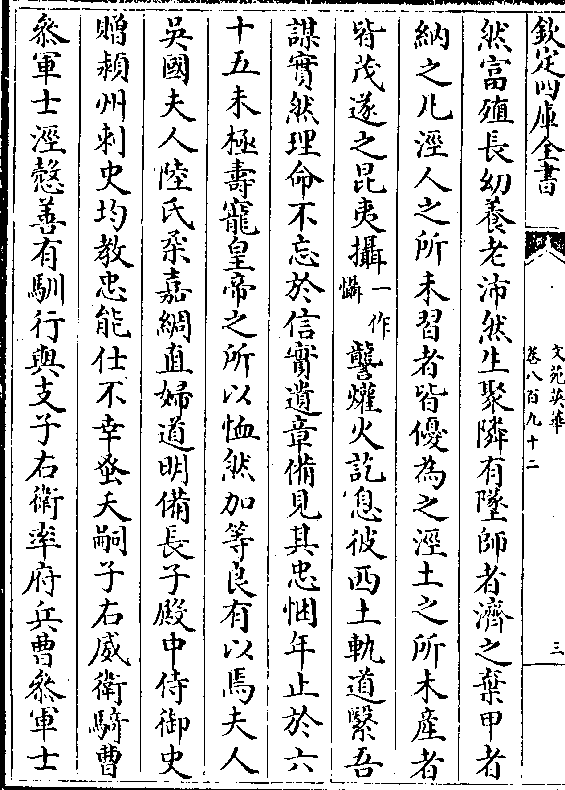 欽定四庫全書
文苑英華
卷八百九十二
三
然富殖長幼養老沛然生聚隣有墜師者濟之棄甲者
納之凡涇人之所未習者皆優為之涇土之所未産者
皆茂遂之昆夷攝一作懾讋爟火訖息彼西土軌道繄吾
謀實然理命不忘於信實遺章備見其忠悃年止於六
十五未極壽寵皇帝之所以恤然加等良有以焉夫人
吳國夫人陸氏柔嘉綢直婦道明備長子殿中侍御史
贈潁州刺史均教忠能仕不幸蚤夭嗣子右威衛騎曹
參軍士涇慤善有馴行與支子右衛率府兵曹參軍士